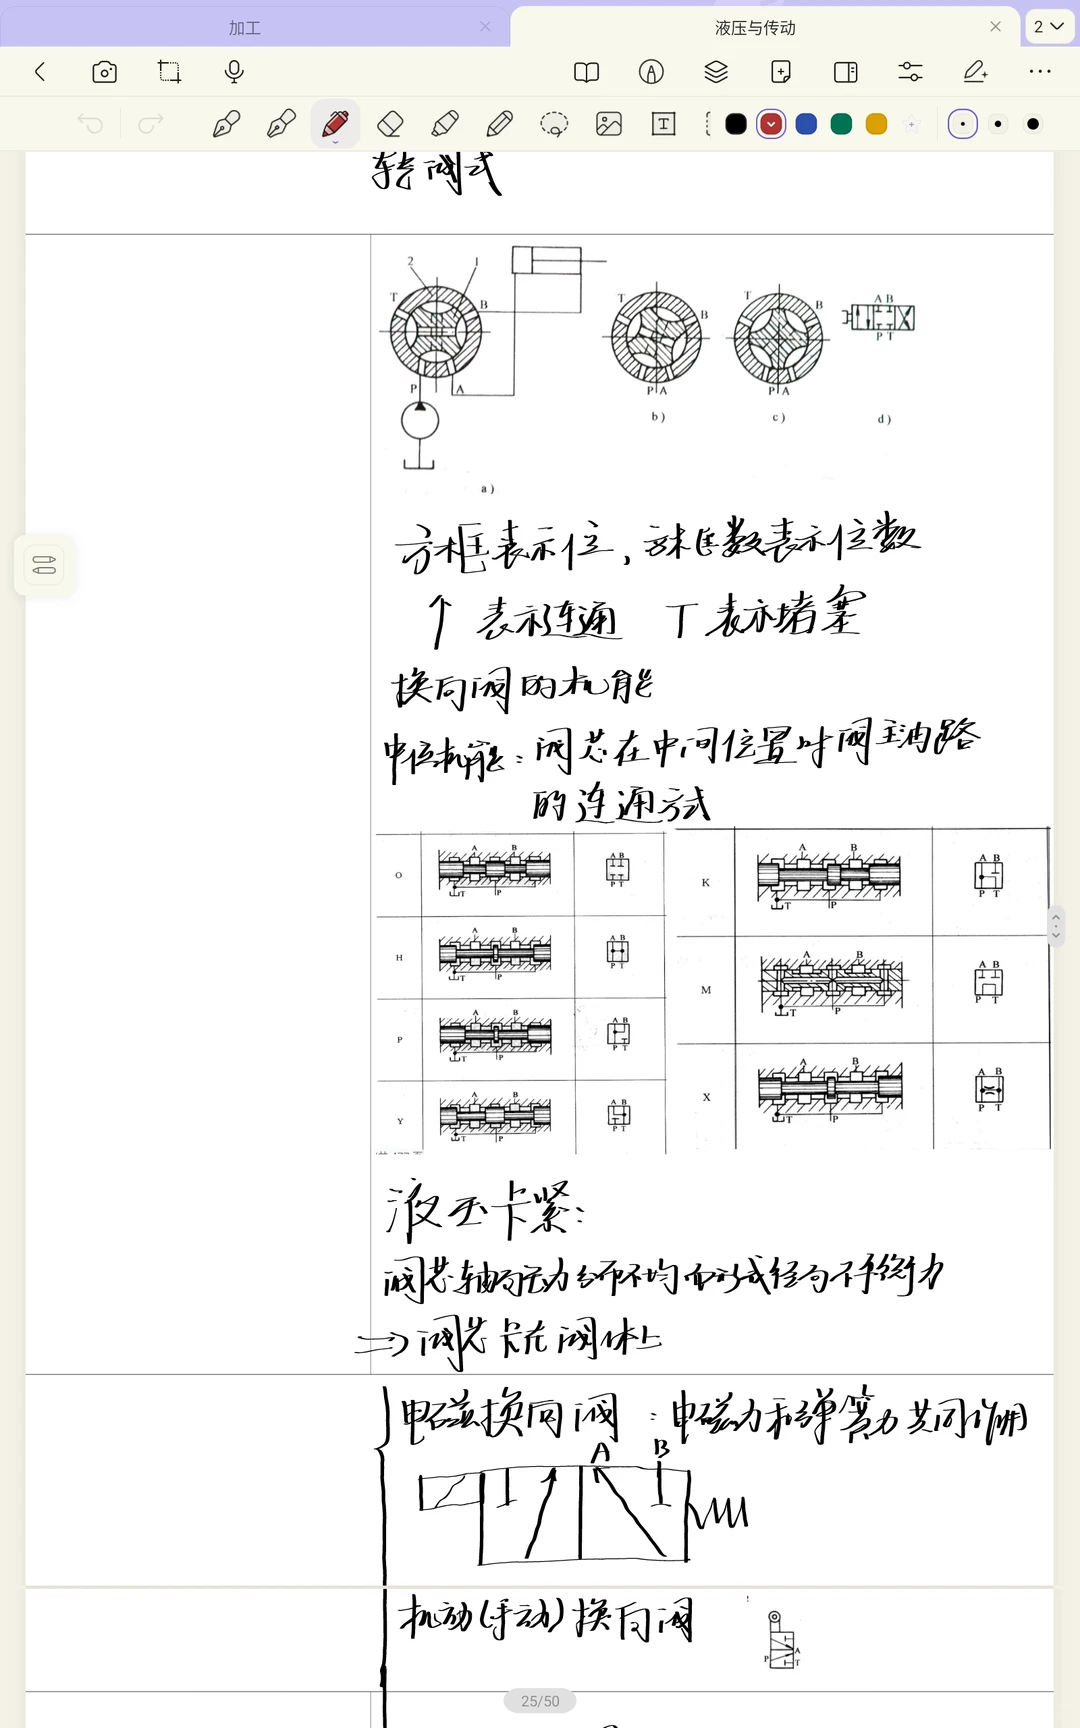 加工
液压与传动
2
转阀式
2 1
T B
P A
a)
T B
P A
b)
T B
P A
c)
A B
P T
d)
方框表示位,方框数表示位数
↑ 表示连通 T 表示堵塞
换向阀的机能
中位机能:阀芯在中间位置时阀主油路
的连通方式
O A B T P A B P T
H A B T P A B P T
P A B T P A B P T
Y A B T P A B P T
K A B T P A B P T
M A B T P A B P T
X A B T P A B P T
液压卡紧:
阀芯轴向压力分布不均而形成径向不平衡力
=> 阀芯卡在阀体上
电磁换向阀:电磁力和弹簧力共同作用
A B
机动(手动)换向阀
P A T
25/50